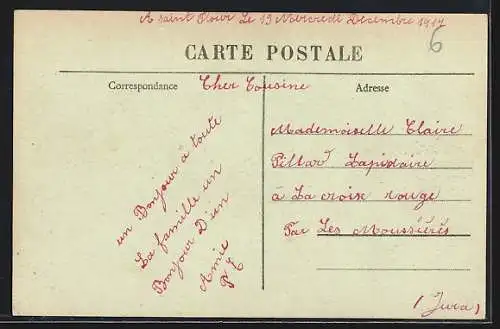 A saint Flour Le 19 Mercredi Decembre 1917
6
CARTE POSTALE
Correspondance
Cher Cousine
Adresse
un Bonjour a toute
La famille un
Bonjour D'un
Amie
P C
Mademoiselle Claire
Pillard Lapidaire
à La croix rouge
Par Les Moussières
(Jura)